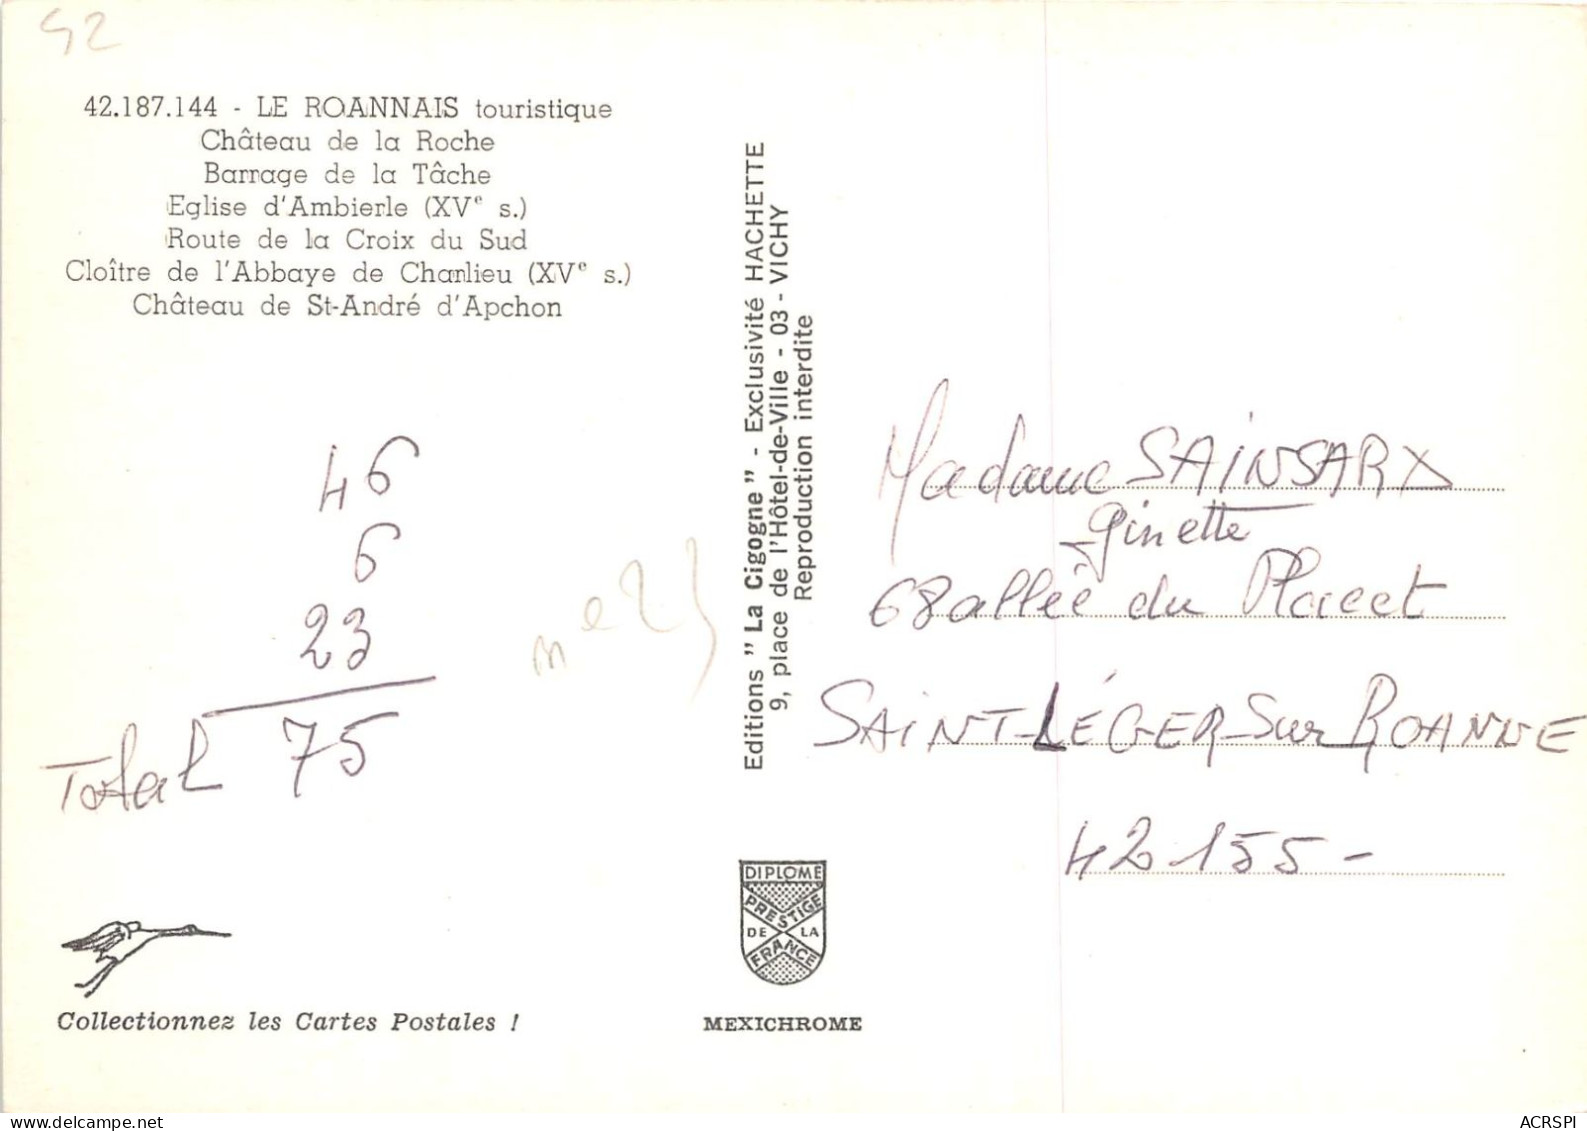 42
42.187.144 - LE ROANNAIS touristique
Château de la Roche
Barrage de la Tâche
Eglise d'Ambierle (XVe s.)
Route de la Croix du Sud
Cloître de l'Abbaye de Charlieu (XVe s.)
Château de St-André d'Apchon
46
6
23
Total 75
Editions " La Cigogne " - Exclusivité HACHETTE
9, place de l'Hôtel-de-Ville - 03 - VICHY
Reproduction interdite
Madame SAINSARD
Ginette
68 allée du Placet
SAINT-LÉGER-Sur ROANNE
42155-
DIPLOME
PRESTIGE
DE LA
FRANCE
Collectionnez les Cartes Postales !
MEXICHROME
ACRSPI